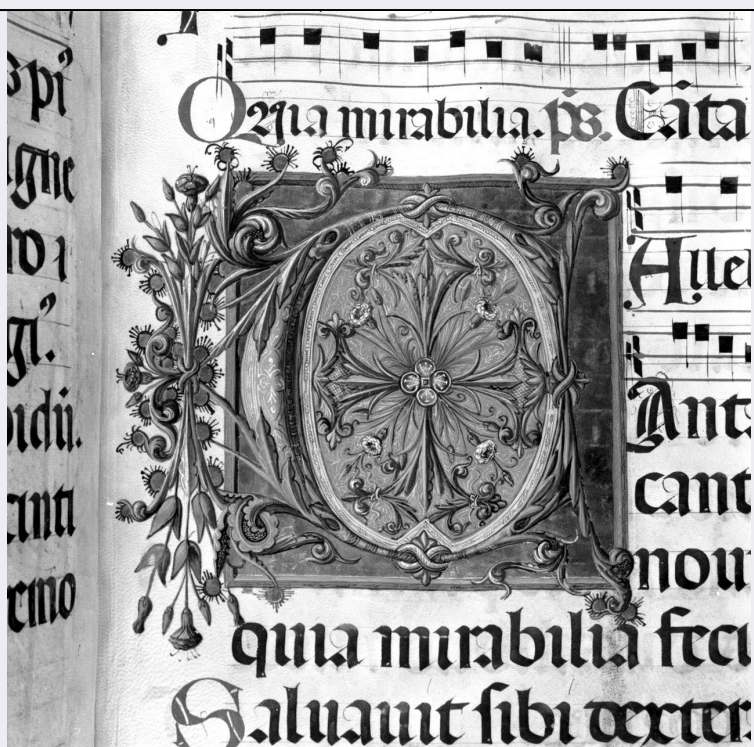 spi
igne
ro i
gi.
idii.
anti
ximo
Quia mirabilia. ps. Cāta
Allel
C
Anta
cant
nou
quia mirabilia feci
Saluauit sibi dexter